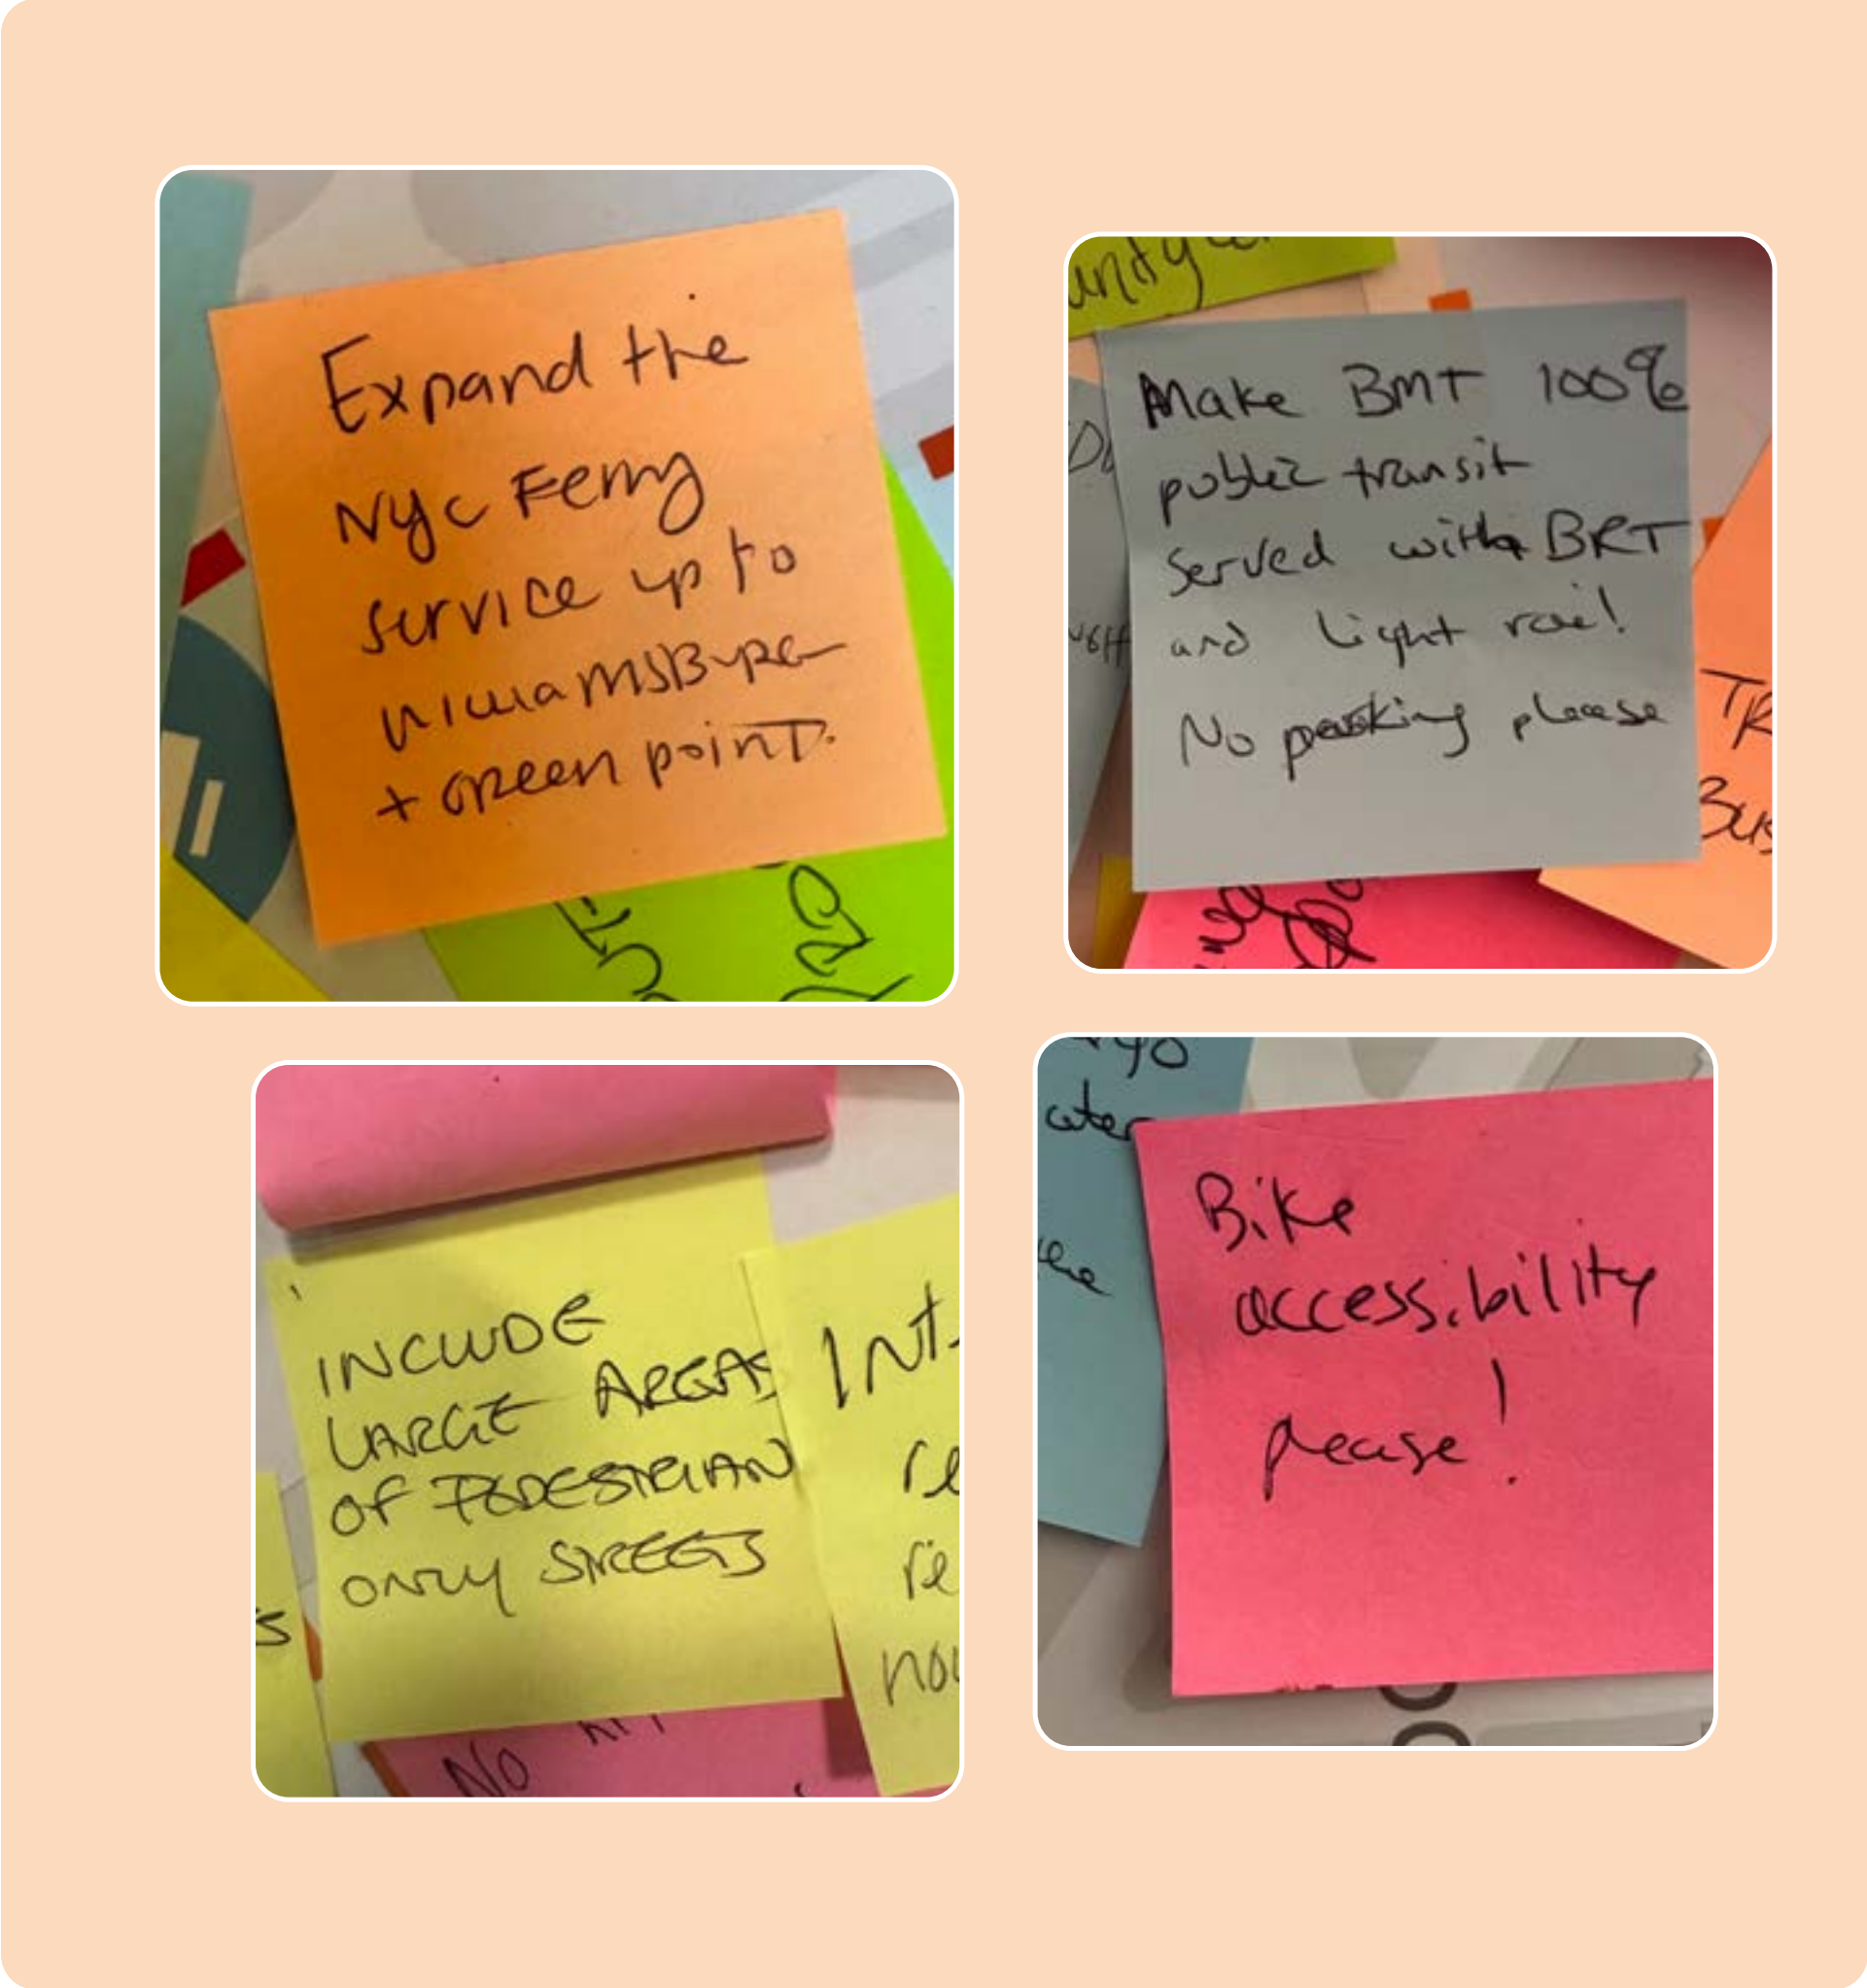 Expand the
NYC Ferry
service up to
Williamsburg
+ Greenpoint.
unity
Make BMT 100%
public transit
served with BRT
and light rail!
No parking please
TR
Bus
INCLUDE
LARGE AREAS
OF PEDESTRIAN
ONLY STREETS
Int
re
re
no
No
ater
Bike
accessibility
please!